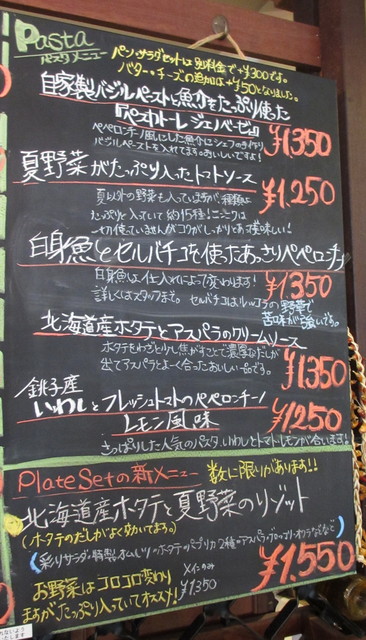 Pasta
パスタメニュー
パン・サラダセットは別料金で+¥300です。
バター・チーズの追加は+¥50となりました。
自家製バジルペーストと魚介をたっぷり使った
『ペスカトーレジェノベーゼ』
ペペロンチーノ風にした魚介にシェフの手作り
バジルペーストを入れてます。おいしいですよ!
¥1,350
夏野菜がたっぷり入ったトマトソース
¥1,250
夏以外の野菜も入っていますが、種類は
たっぷりと入っていて約15種!ニンニクは
一切使っていませんがコクがしっかりとあって美味しい!
白身魚とセルバチコを使ったあっさりペペロンチーノ
白身魚は仕入れによって変わります!
詳しくはスタッフまで。セルバチコはルッコラの野草で
苦味が強いです。
¥1,350
北海道産ホタテとアスパラのクリームソース
ホタテをわざと少し焦がすことで濃厚なだしが
出てアスパラとよく合ったおいしい一品です。
¥1,350
銚子産
いわしとフレッシュトマトのペペロンチーノ
レモン風味
¥1,250
さっぱりした人気のパスタ。いわしとトマト・レモンが合います!
Plate Setの新メニュー
数に限りがあります!!
北海道産ホタテと夏野菜のリゾット
(ホタテのだしがよく効いてます。)
(彩りサラダ・特製オムレツ・ホタテ・パプリカ2種・アスパラ・ブロッコリ・オクラなどなど)
¥1,550
お野菜はコロコロ変わり
ますが、たっぷり入っていてオススメ!
¥1,350